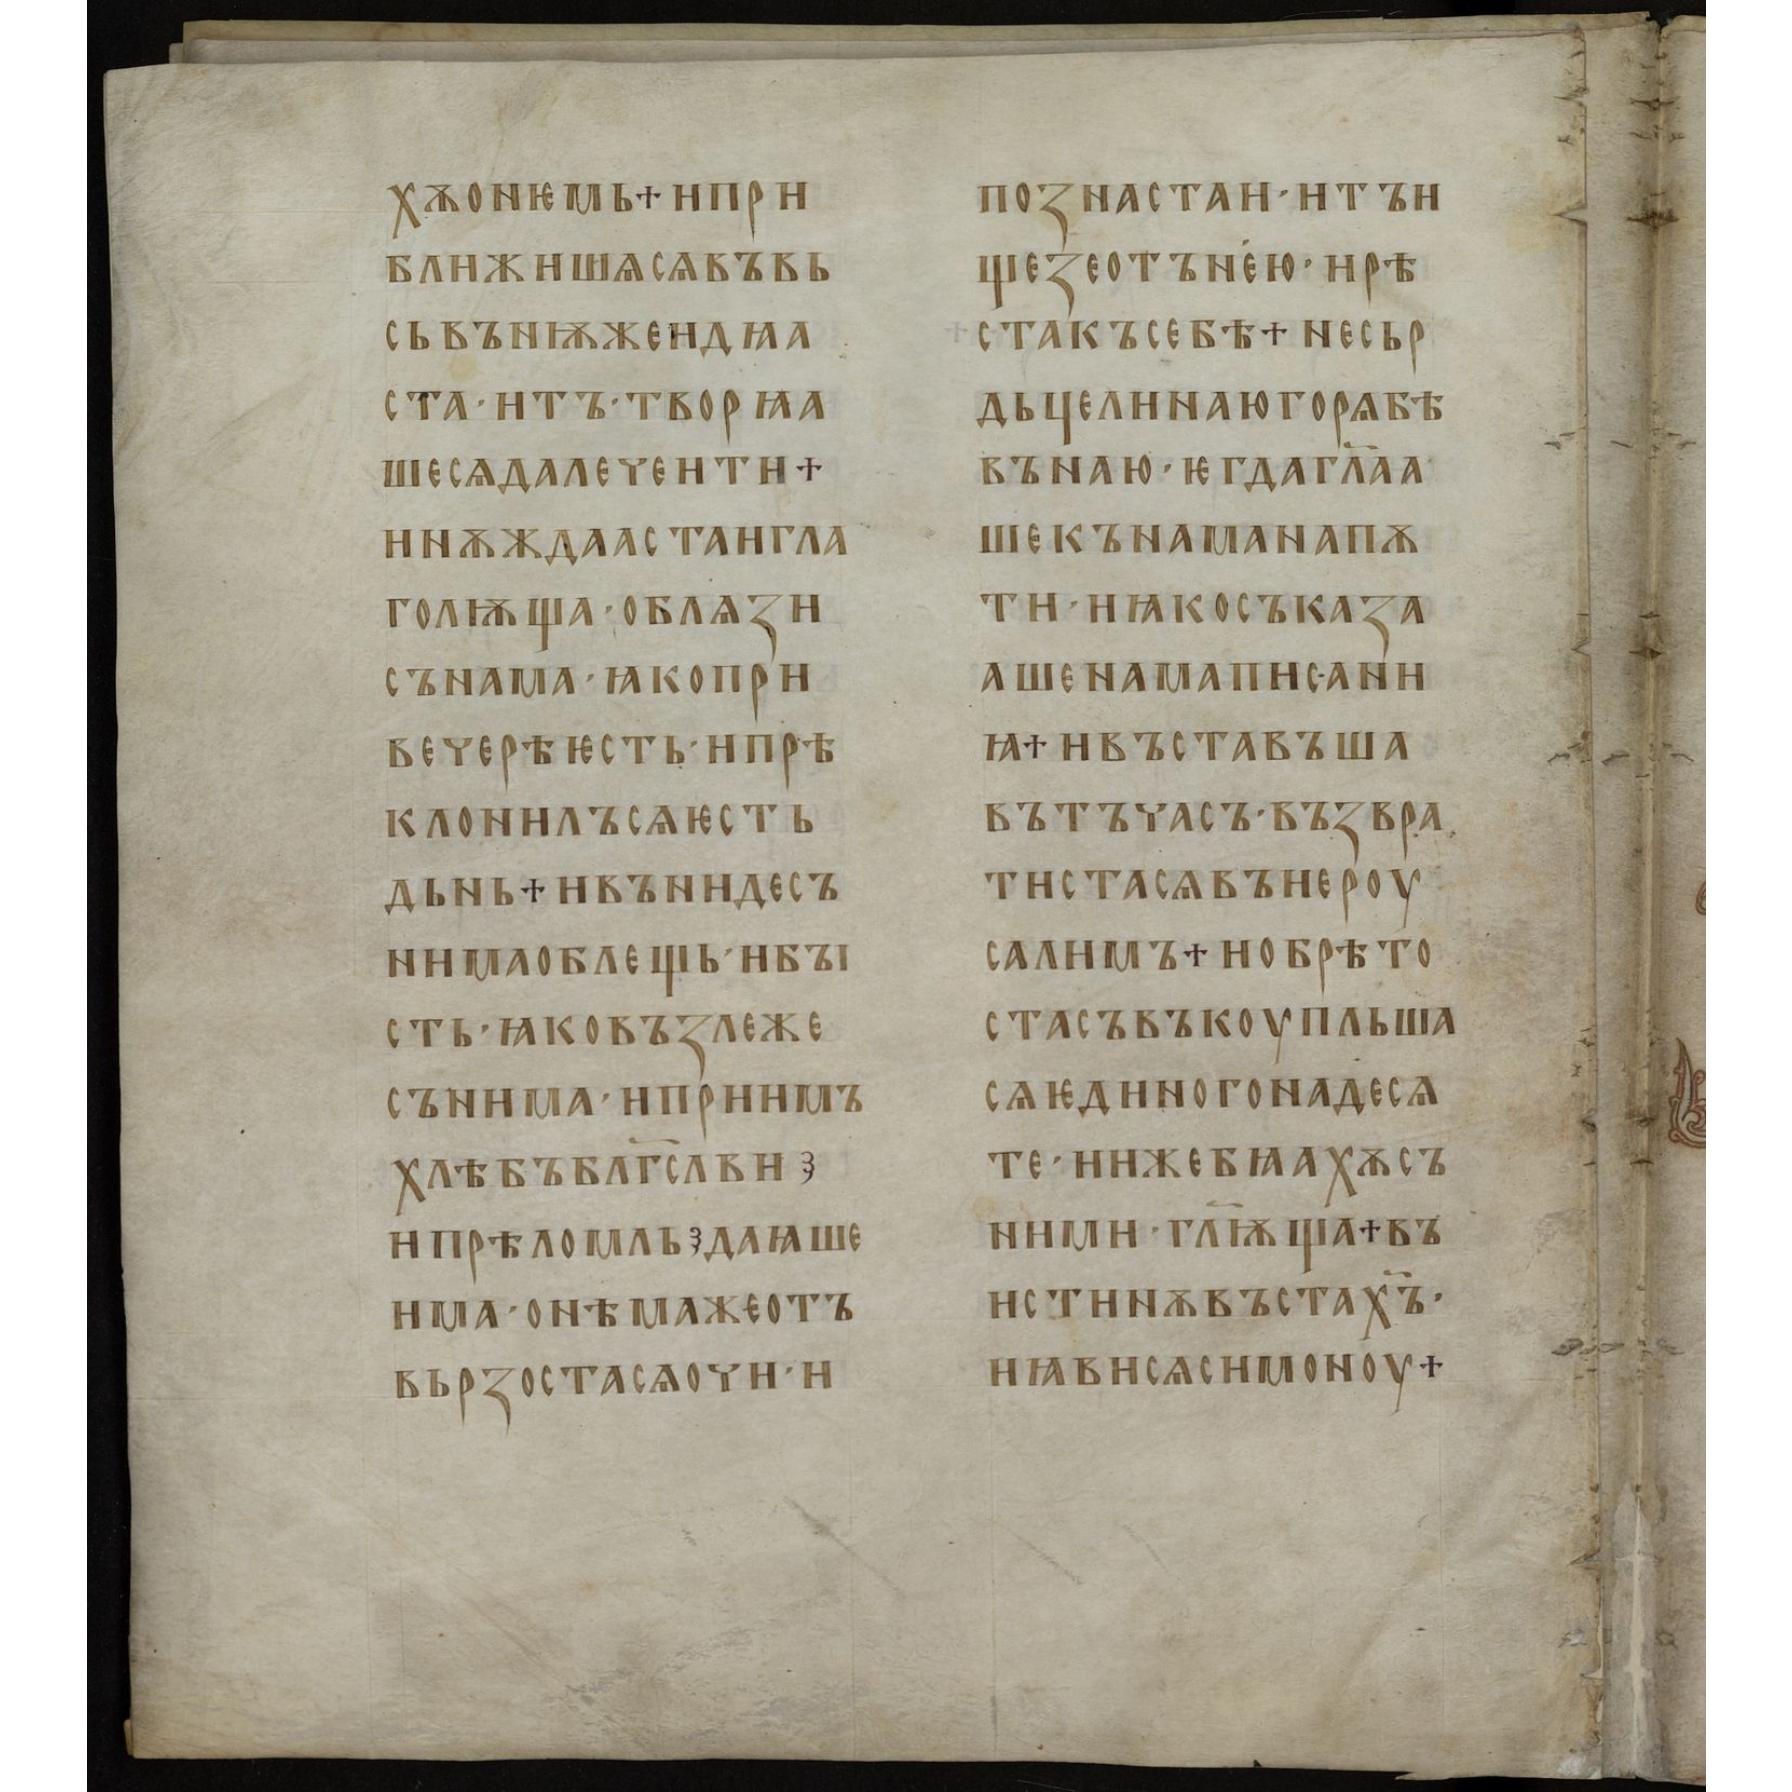 хѫонѥмь+ипри
ближишѧсѧвъвь
сьвънѭжеидꙗа
ста·итъ·творꙗа
шесѧдалечеити+
инѫждаастаигла
голѭща·облѧзи
сънама·ꙗкопри
вечерѣѥсть·ипрѣ
клонилъсѧѥсть
дьнь+ивънидесъ
нимаоблещь·ибꙑ
сть·ꙗковъзлеже
сънима·ипріимъ
хлѣбъблг҃слви ꙁ
ипрѣломльꙁдаꙗше
има·онѣмажеотъ
вьрзостасѧочи·и
познастаи·итъи
щезеотъне́ю·ирѣ
стакъсебѣ+несьр
дьцелинаюгорѧбѣ
вънаю·ѥгдагл҃аа
шекънаманапѫ
ти·иꙗкосъказа
ашенамаписани
ꙗ+ивъставъша
вътъчасъ·възвра
тистасѧвъиероу
салимъ+иобрѣто
стасъвъкоупльша
сѧѥдиногонадесѧ
те·иижебꙗахѫсъ
ними·гл҃ѭща+въ
истинѫвъстах҃ъ·
иꙗвисѧсимоноу+